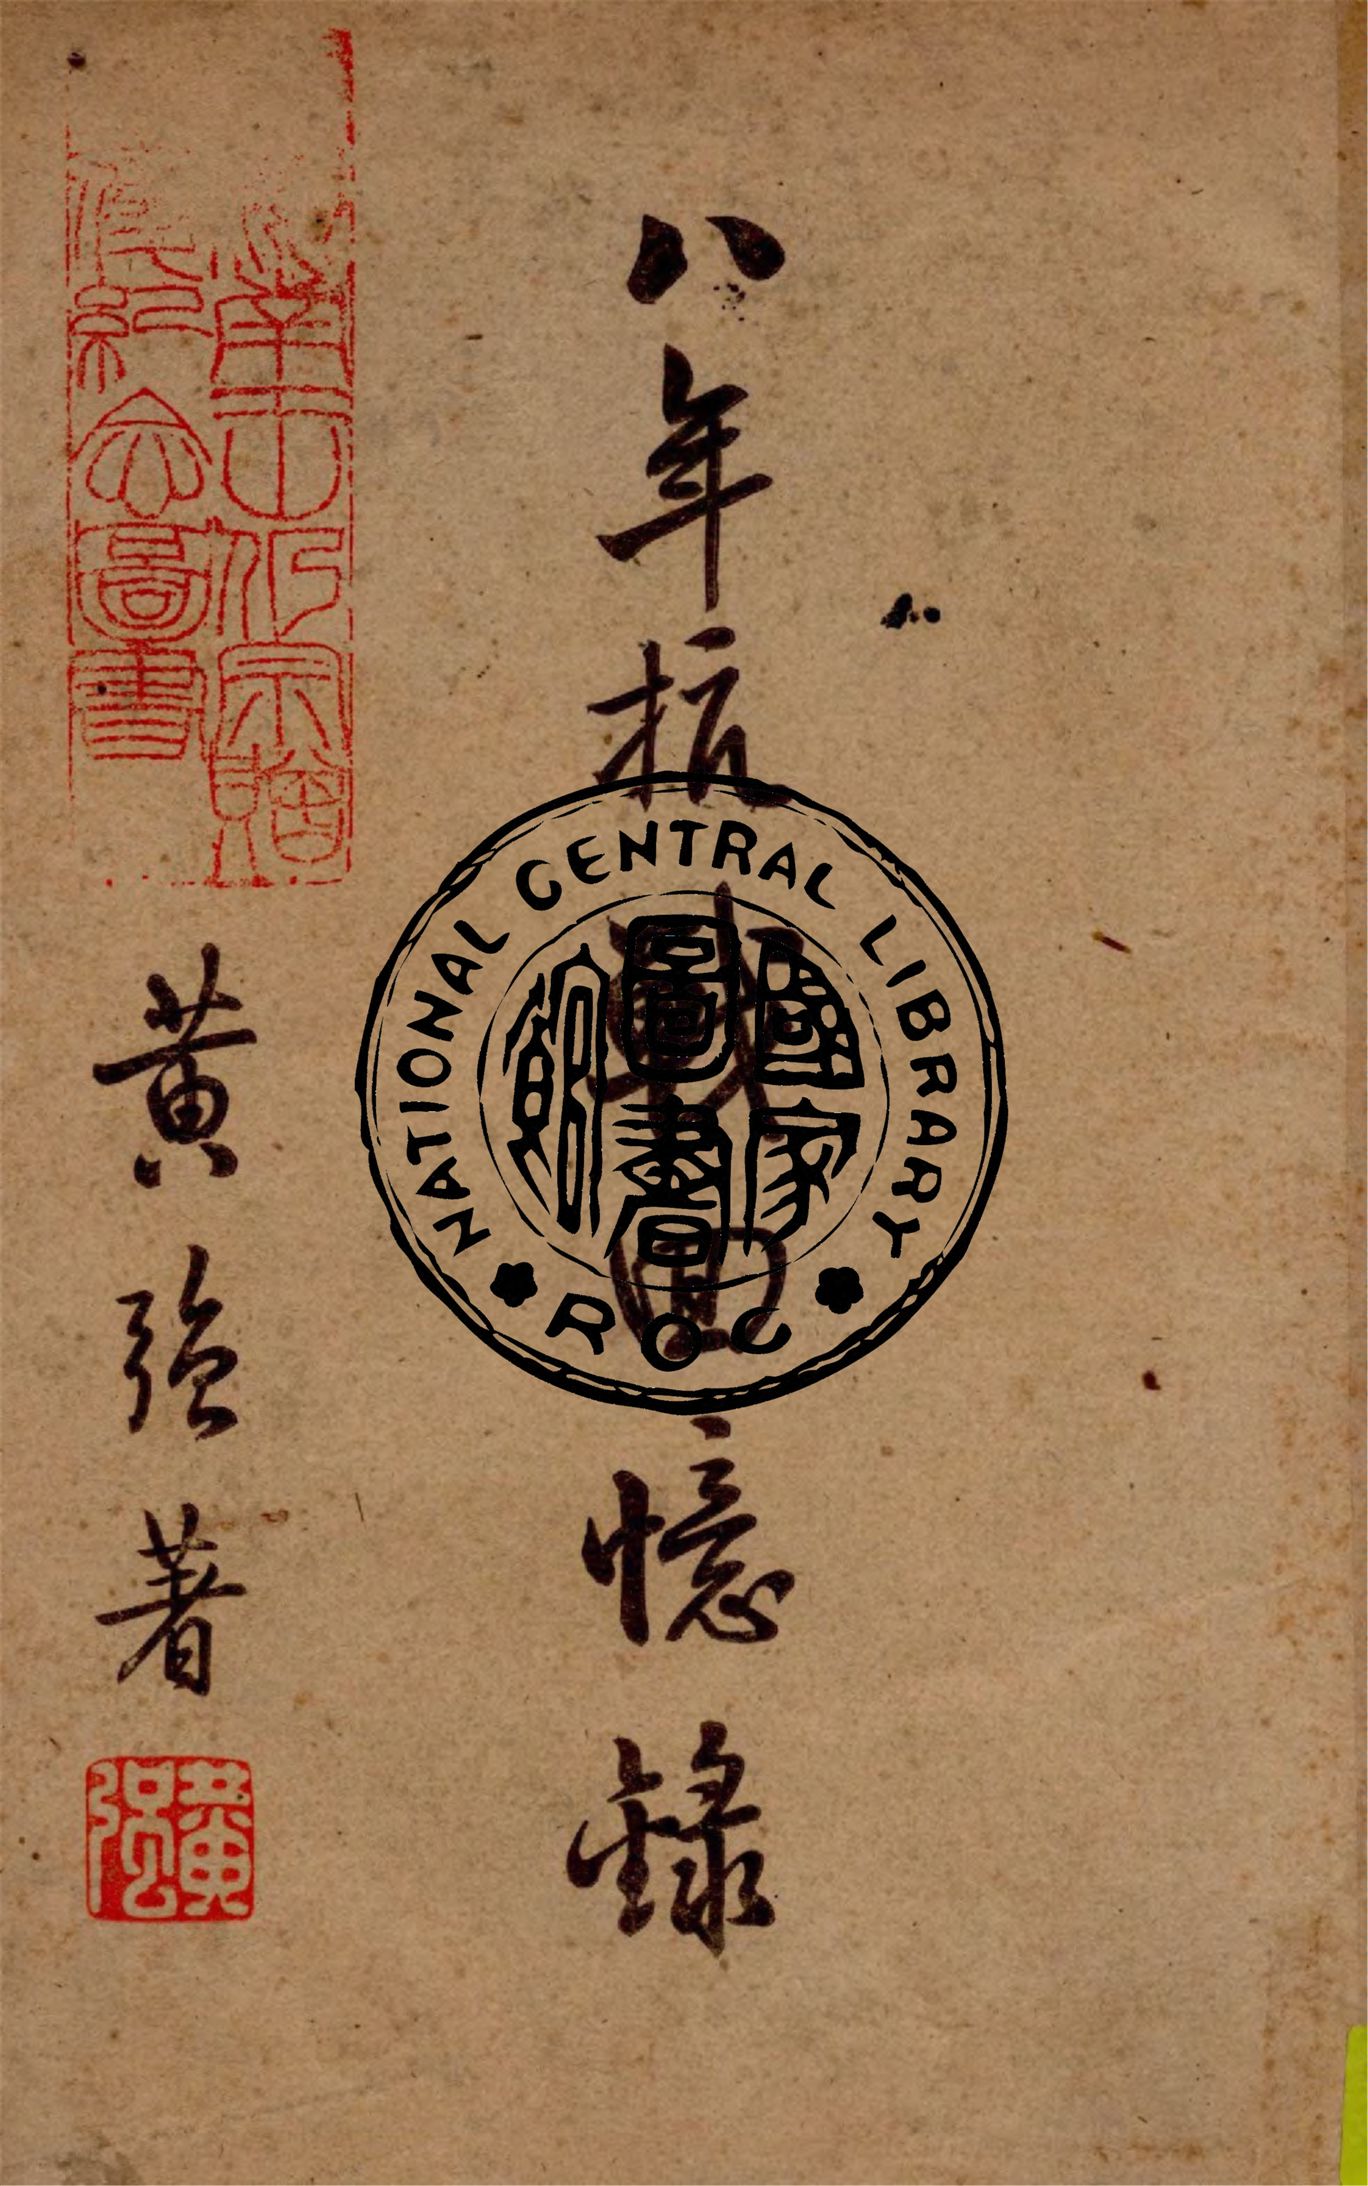 八年抗戰回憶錄
黃強著
黃強
NATIONAL CENTRAL LIBRARY
國家圖書館
ROC
紀念圖書